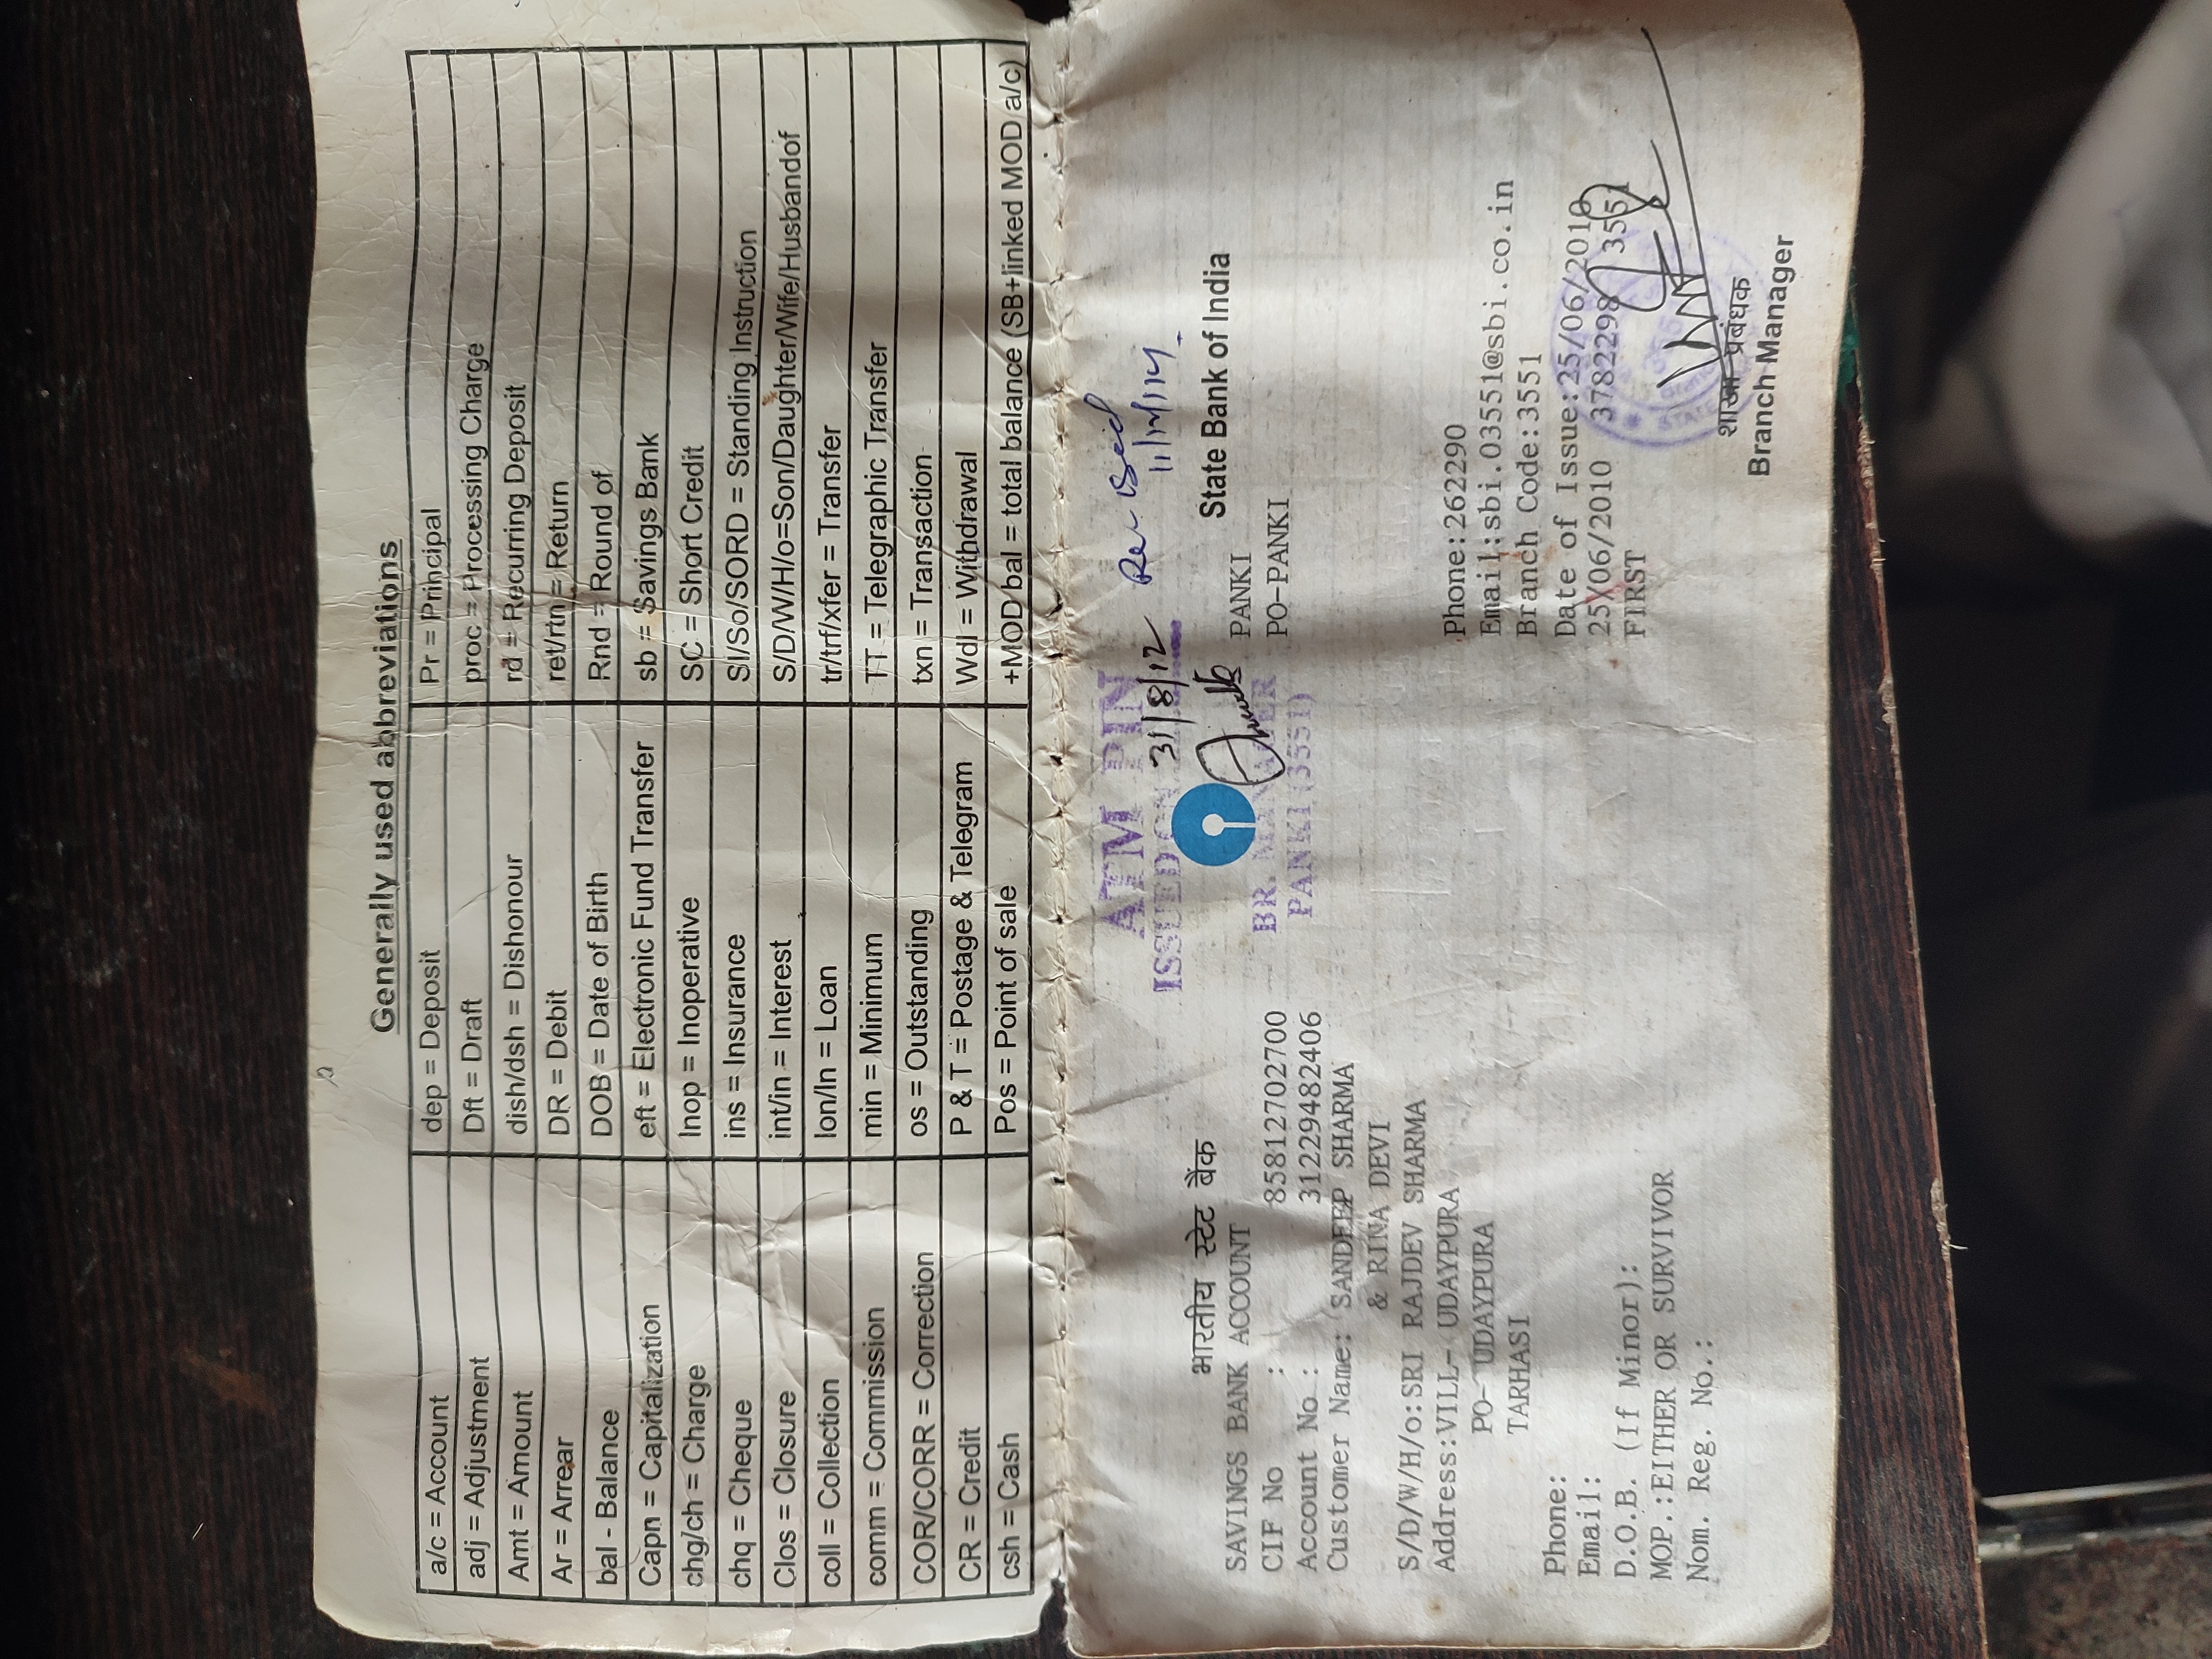 Generally used abbreviations
a/c = Account	dep = Deposit	Pr = Principal
adj = Adjustment	Dft = Draft	proc = Processing Charge
Amt = Amount	dish/dsh = Dishonour	rd = Recurring Deposit
Ar = Arrear	DR = Debit	ret/rtn = Return
bal - Balance	DOB = Date of Birth	Rnd = Round of
Capn = Capitalization	eft = Electronic Fund Transfer	sb = Savings Bank
chg/ch = Charge	Inop = Inoperative	SC = Short Credit
chq = Cheque	ins = Insurance	SI/So/SORD = Standing Instruction
Clos = Closure	int/in = Interest	S/D/W/H/o=Son/Daughter/Wife/Husbandof
coll = Collection	lon/ln = Loan	tr/trf/xfer = Transfer
comm = Commission	min = Minimum	TT = Telegraphic Transfer
COR/CORR = Correction	os = Outstanding	txn = Transaction
CR = Credit	P & T = Postage & Telegram	Wdl = Withdrawal
csh = Cash	Pos = Point of sale	+MOD bal = total balance (SB+linked MOD a/c)
ATM PIN
ISSUED ON 31/8/12
BR. MANAGER
PANKI (3551)
भारतीय स्टेट बैंक	State Bank of India
SAVINGS BANK ACCOUNT	PANKI
CIF No : 85812702700	PO-PANKI
Account No.: 31229482406
Customer Name: SANDEEP SHARMA
& RINA DEVI
S/D/W/H/o:SRI RAJDEV SHARMA
Address:VILL- UDAYPURA	Phone:262290
PO- UDAYPURA	Email:sbi.03551@sbi.co.in
TARHASI	Branch Code:3551
Phone:	Date of Issue:25/06/2010
Email:	25/06/2010 37822298 3551
D.O.B. (If Minor):	FIRST
MOP.:EITHER OR SURVIVOR
Nom. Reg. No.:
शाखा प्रबंधक
Branch Manager